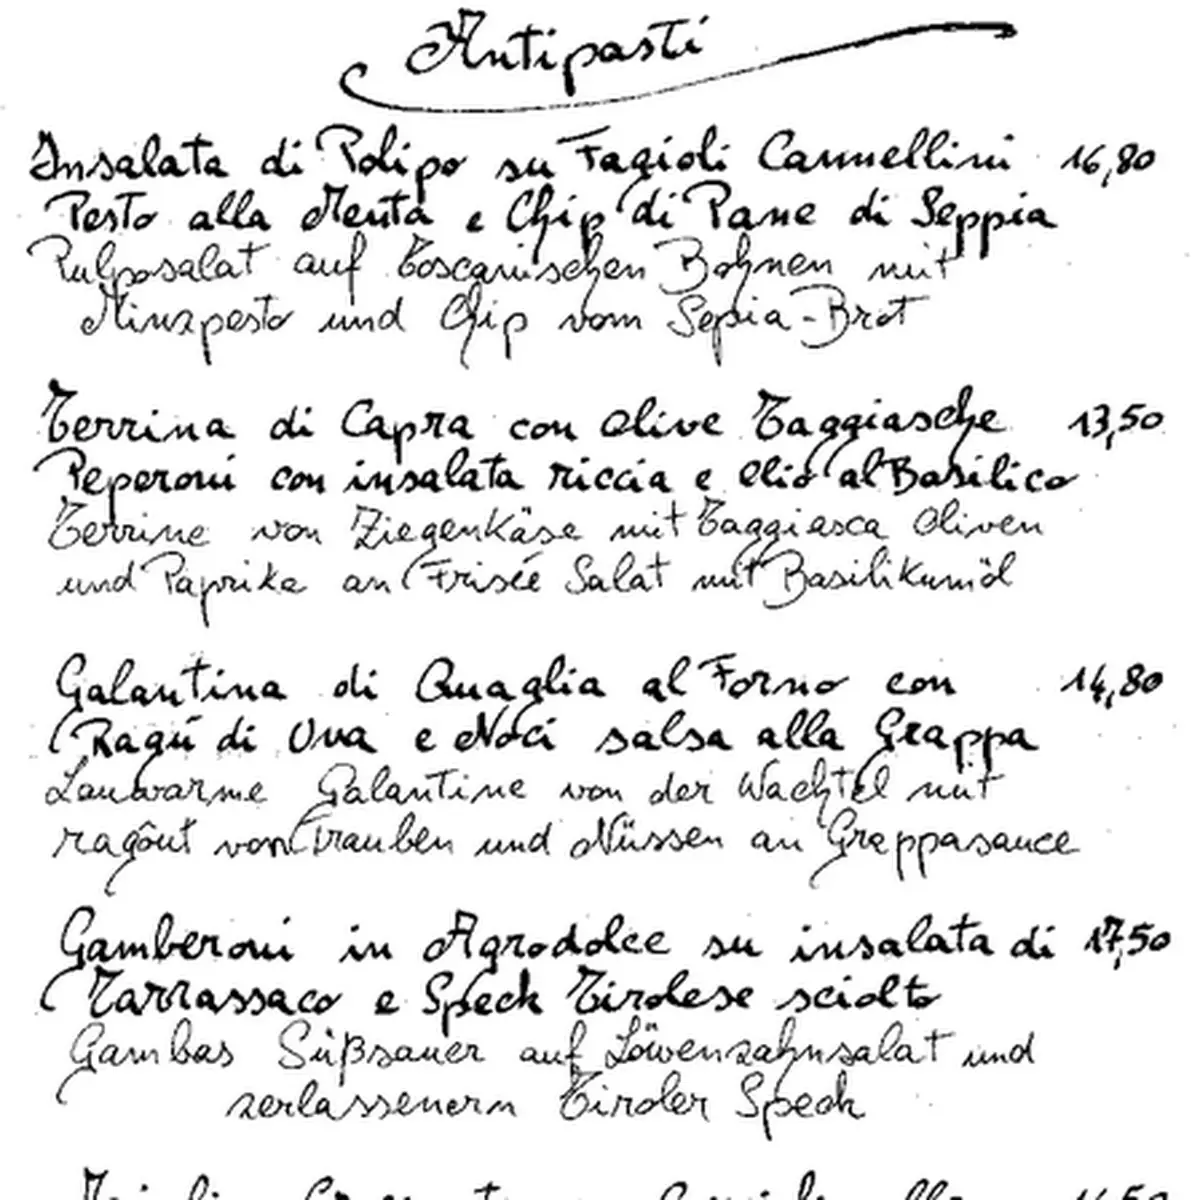 Antipasti
Insalata di Polipo su Fagioli Cannellini 16,80
Pesto alla Menta e Chip di Pane di Seppia
Pulposalat auf Toscanischen Bohnen mit
Minzpesto und Chip vom Sepia-Brot
Terrina di Capra con Olive Taggiasche 13,50
Peperoni con insalata riccia e Olio al Basilico
Terrine von Ziegenkäse mit Taggiasca Oliven
und Paprika an Frisée Salat mit Basilikumöl
Galantina di Quaglia al Forno con 14,80
Ragú di Uva e Noci salsa alla Grappa
Lauwarme Galantine von der Wachtel mit
ragôut von Trauben und Nüssen an Grappasauce
Gamberoni in Agrodolce su insalata di 17,50
Tarrassaco e Speck Tirolese sciolto
Gambas Süßsauer auf Löwenzahnsalat und
zerlassenern Tiroler Speck